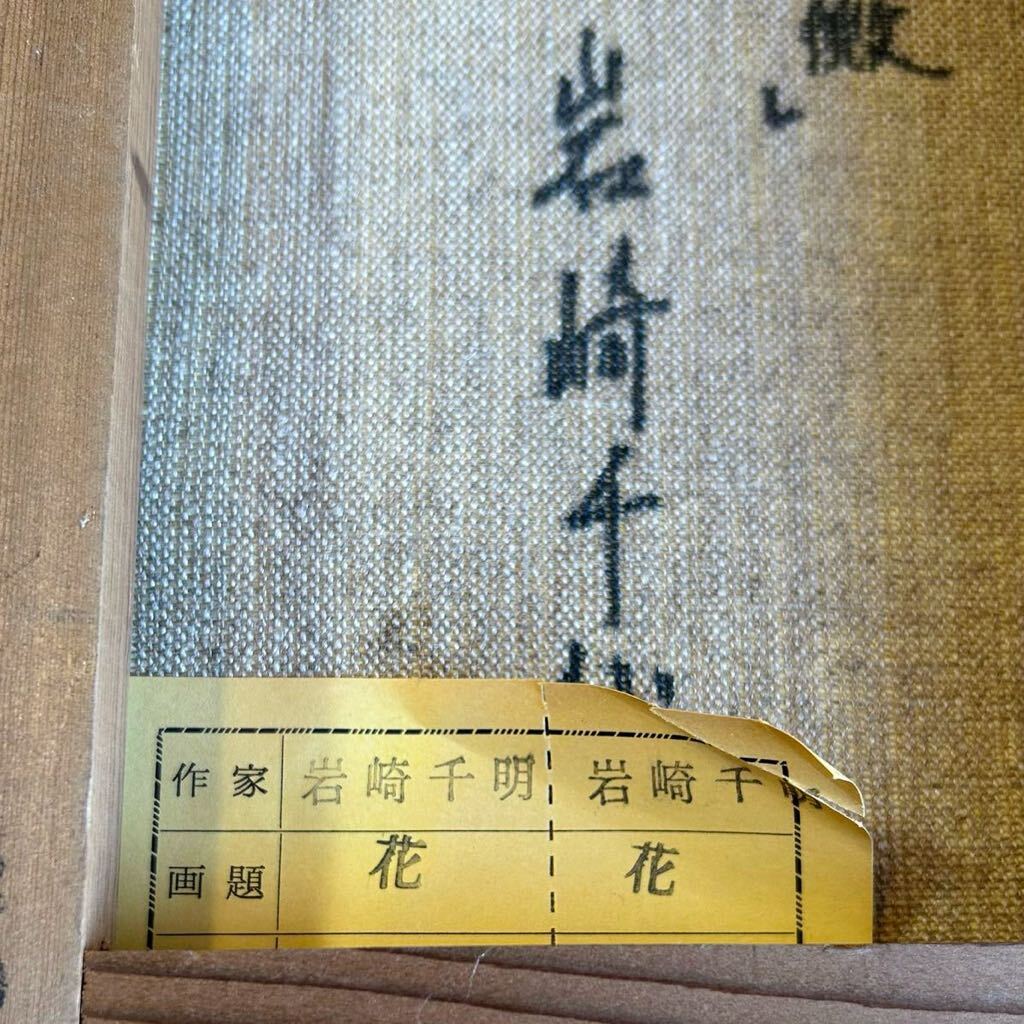 」
岩崎千
作家 岩崎千明 岩崎千
画題 花 花